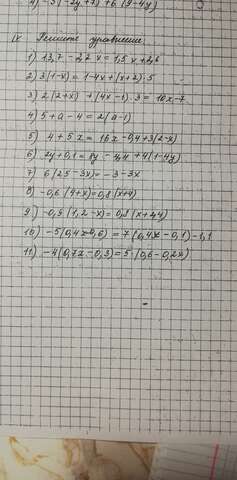 4) -5(-2y+7)+6(9-4y)
IV Решите уравнение.
1) 13,7 - 2,2x = 1,5x + 2,6
2) 3(1-x) = 1-4x+(x+2)·5
3) 2(2+x) +(4x-1)·3 = 10x-7
4) 5+a-4 = 2(a-1)
5) 4+5x = 16x-0,4+3(2-x)
6) 2y+0,1= 8y - 4,4 +4(1-4y)
7) 6(25-3x)= -3-3x
8) -0,6(4+x)=0,8(x+4)
9) -0,5(1,2-x)=0,8(x+2,4)
10) -5(0,4x-0,6) = 7(0,4x-0,1)-1,1
11) -4(0,7x-0,3)=5(0,6-0,2x)